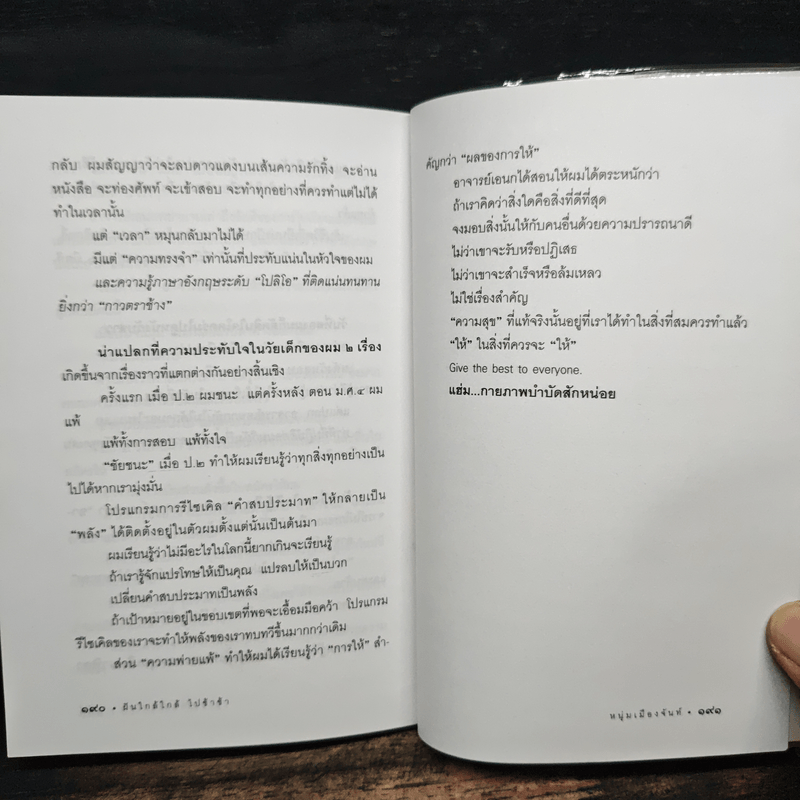 กลับ ผมสัญญาว่าจะลบดาวแดงบนเส้นความรักทิ้ง จะอ่าน
หนังสือ จะท่องศัพท์ จะเข้าสอบ จะทำทุกอย่างที่ควรทำแต่ไม่ได้
ทำในเวลานั้น
แต่ "เวลา" หมุนกลับมาไม่ได้
มีแต่ "ความทรงจำ" เท่านั้นที่ประทับแน่นในหัวใจของผม
และความรู้ภาษาอังกฤษระดับ "โปลิโอ" ที่ติดแน่นทนทาน
ยิ่งกว่า "กาวตราช้าง"
น่าแปลกที่ความประทับใจในวัยเด็กของผม ๒ เรื่อง
เกิดขึ้นจากเรื่องราวที่แตกต่างกันอย่างสิ้นเชิง
ครั้งแรก เมื่อ ป.๒ ผมชนะ แต่ครั้งหลัง ตอน ม.ศ.๔ ผม
แพ้
แพ้ทั้งการสอบ แพ้ทั้งใจ
"ชัยชนะ" เมื่อ ป.๒ ทำให้ผมเรียนรู้ว่าทุกสิ่งทุกอย่างเป็น
ไปได้หากเรามุ่งมั่น
โปรแกรมการรีไซเคิล "คำสบประมาท" ให้กลายเป็น
"พลัง" ได้ติดตั้งอยู่ในตัวผมตั้งแต่นั้นเป็นต้นมา
ผมเรียนรู้ว่าไม่มีอะไรในโลกนี้ยากเกินจะเรียนรู้
ถ้าเรารู้จักแปรโทษให้เป็นคุณ แปรลบให้เป็นบวก
เปลี่ยนคำสบประมาทเป็นพลัง
ถ้าเป้าหมายอยู่ในขอบเขตที่พอจะเอื้อมมือคว้า โปรแกรม
รีไซเคิลของเราจะทำให้พลังของเราทบทวีขึ้นมากกว่าเดิม
ส่วน "ความพ่ายแพ้" ทำให้ผมได้เรียนรู้ว่า "การให้" สำ-
๑๙๐ • ฝันใกล้ใกล้ ไปช้าช้า
คัญกว่า "ผลของการให้"
อาจารย์เอนกได้สอนให้ผมได้ตระหนักว่า
ถ้าเราคิดว่าสิ่งใดคือสิ่งที่ดีที่สุด
จงมอบสิ่งนั้นให้กับคนอื่นด้วยความปรารถนาดี
ไม่ว่าเขาจะรับหรือปฏิเสธ
ไม่ว่าเขาจะสำเร็จหรือล้มเหลว
ไม่ใช่เรื่องสำคัญ
"ความสุข" ที่แท้จริงนั้นอยู่ที่เราได้ทำในสิ่งที่สมควรทำแล้ว
"ให้" ในสิ่งที่ควรจะ "ให้"
Give the best to everyone.
แฮ่ม...กายภาพบำบัดสักหน่อย
หนุ่มเมืองจันท์ • ๑๙๑